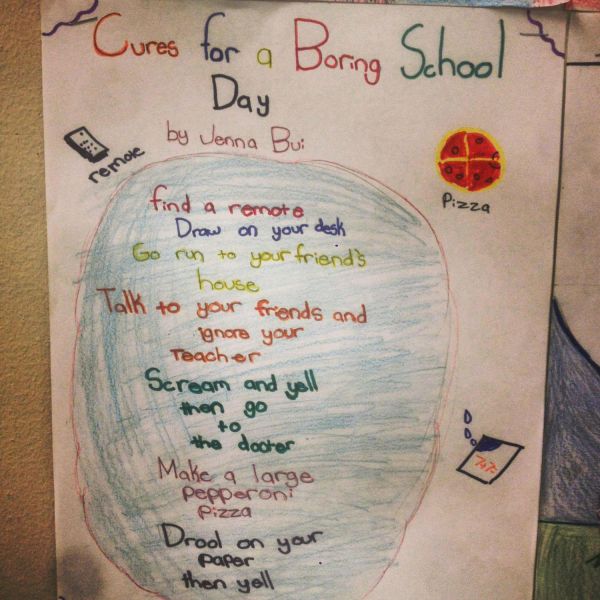 Cures for a Boring School
Day
by Jenna Bui
remote
Pizza
find a remote
Draw on your desk
Go run to your friend's
house
Talk to your friends and
ignore your
Teacher
Scream and yell
then go
to
the docter
Make a large
pepperoni
pizza
Drool on your
paper
then yell